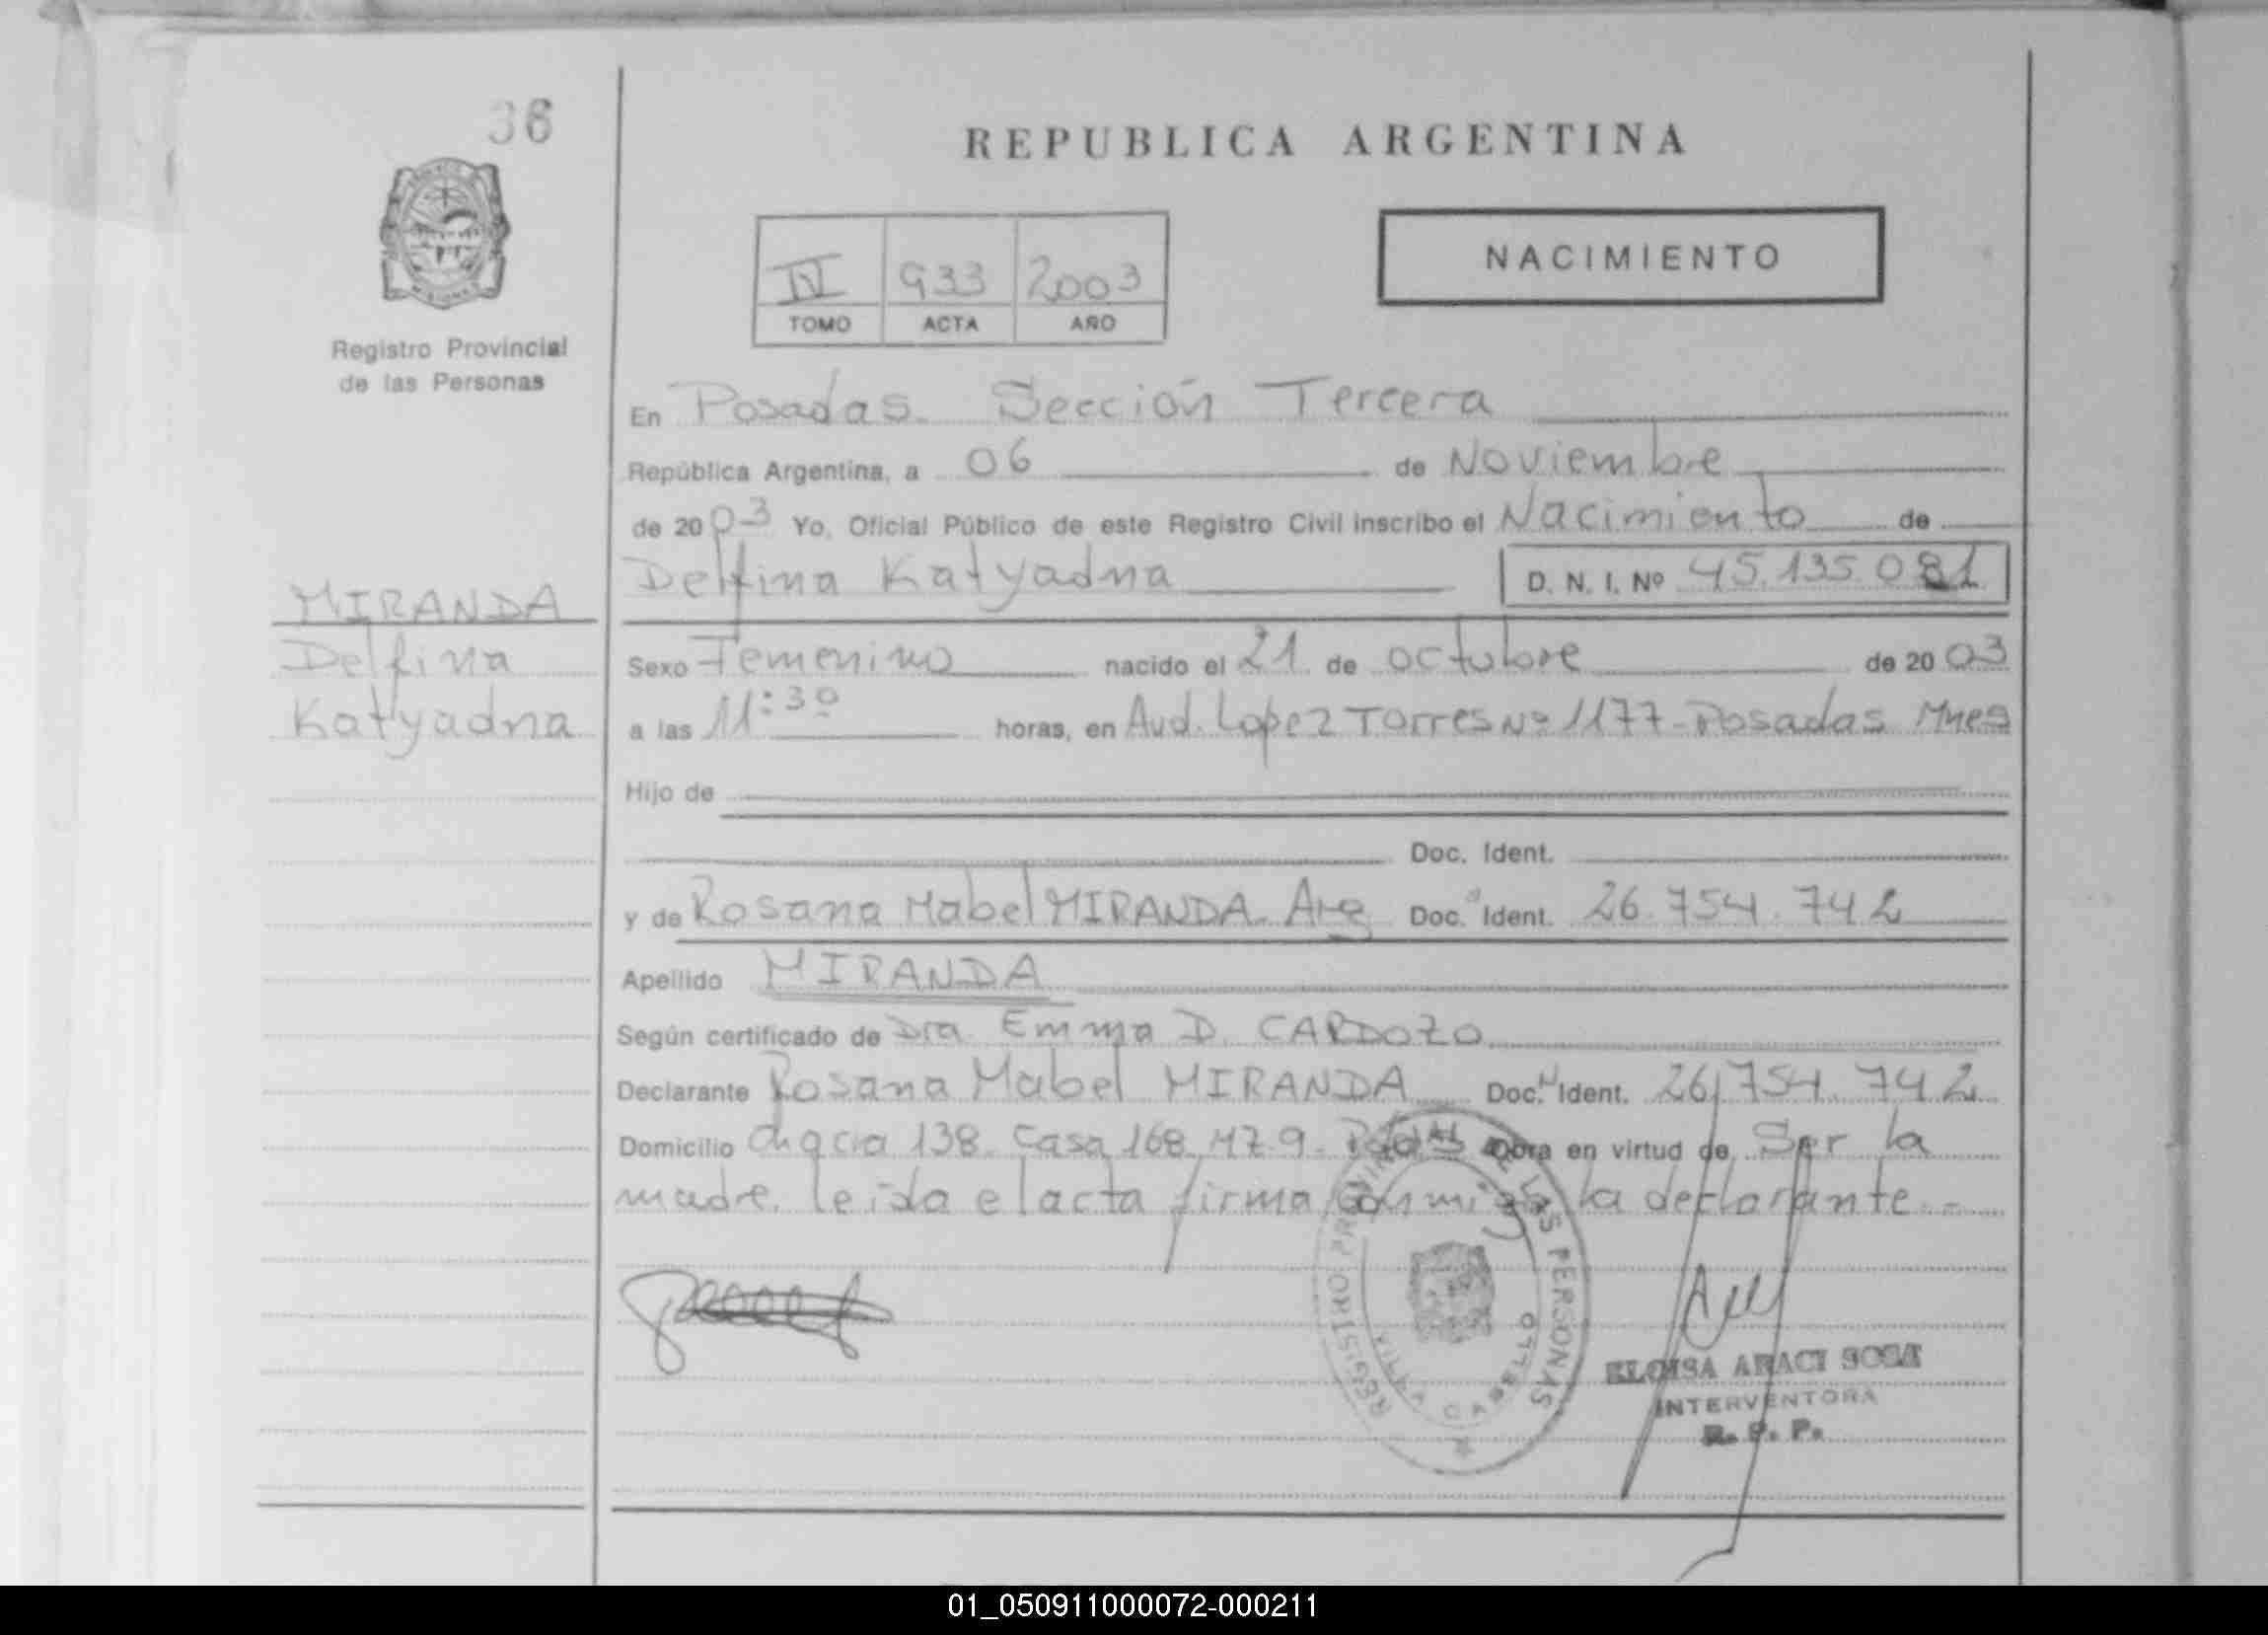 36
REPUBLICA ARGENTINA
NACIMIENTO
IV 933 2003
TOMO ACTA AÑO
Registro Provincial
de las Personas
En Posadas. Sección Tercera
República Argentina, a 06 de Noviembre
de 2003 Yo, Oficial Público de este Registro Civil inscribo el Nacimiento de
Delfina Katyadna D. N. I. Nº 45.135.081
MIRANDA
Delfina
Katyadna
Sexo Femenino nacido el 21 de octubre de 20 03
a las 11:30 horas, en Avd. Lopez Torres Nº 1177-Posadas Mnes
Hijo de
Doc. Ident.
y de Rosana Mabel MIRANDA. Arg Doc. Ident. 26.754.742
Apellido MIRANDA
Según certificado de Dra. Emma D. CARDOZO
Declarante Rosana Mabel MIRANDA Doc. Ident. 26.754.742
Domicilio Chacra 138. Casa 168. MZ 9. Pdas Obra en virtud de Ser la
madre. leida el acta firma conmigo la declarante.-
REGISTRO PROVINCIAL DE LAS PERSONAS
ELOISA ARACI SOSA
INTERVENTORA
R. P. P.
01_050911000072-000211